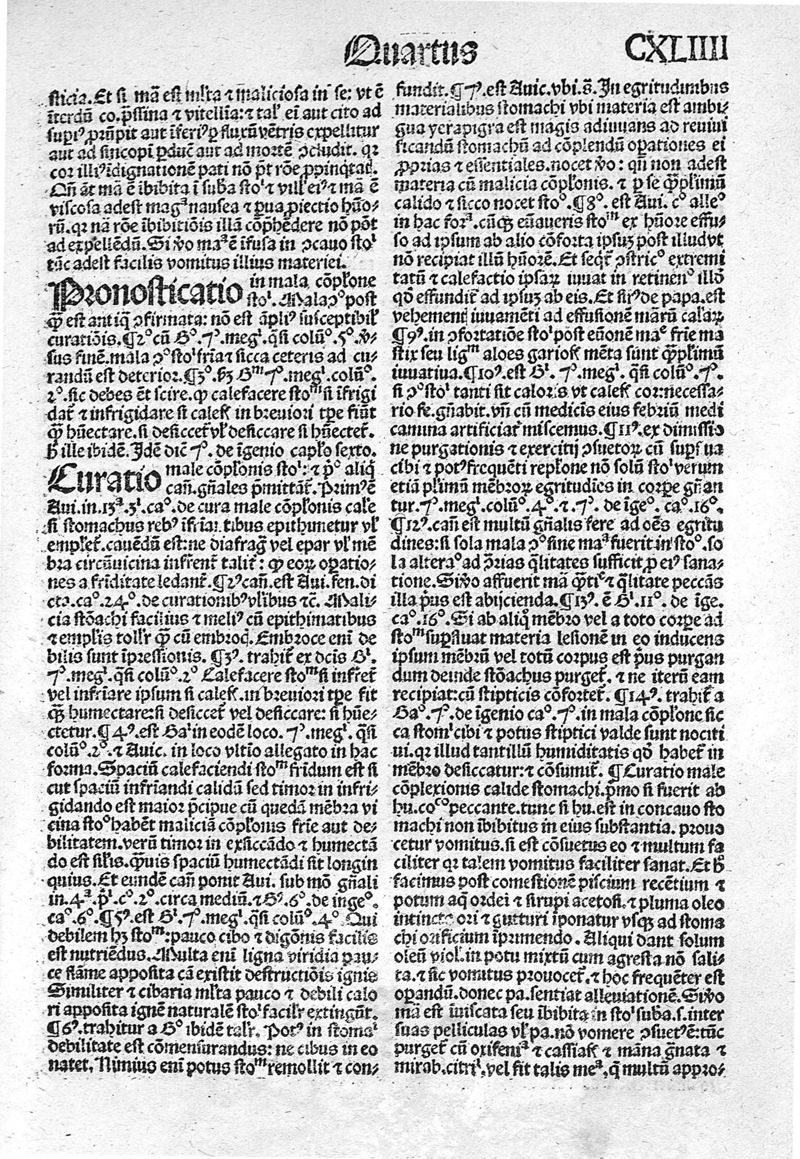 Quartus
CXLIIII
sticia. Et si mā est mꝉta ⁊ maliciosa in se: vt ē
īterdū co. pꝛssina ⁊ vitellia: ⁊ tal' eī aut cito ad
aut ad sincopī ꝑducit aut ad moꝛtē
coꝛ illiꝰ īdignationē pati nō pōt
Qñ āt mā ē ībibita ī suba stoⁱ ⁊ vill' eiꝰ ⁊ mā ē
viscosa adest magᵃ nausea ⁊ ꝑua ꝓiectio hūo⸗
rū. qꝛ nā rōe ībibitiōis illā cōpꝛehēdere nō pōt
ad expellēdū. Si ꝟo maᵃ ē īfusa in ↄcauo stoⁱ
tūc adest facilis vomitus illius materiei.
Pꝛonosticatio in mala cōplone
stoⁱ. Mala ↄᵒ post
ꝙ est antiq̄ ↄfirmata: nō est āpliꝰ susceptibil'
curatiōis. ¶2ᵒ cū Gᵒ. 7ᵒ. megⁱ. qsi colūᵒ. 5ᵒ. ꝟ⸗
sus finē. mala ↄᵒ stoⁱ fria ⁊ sicca ceteris ad cu⸗
randū est deterioꝛ. ¶3ᵒ. hꝫ Gᵐ 7ᵒ. megⁱ. colūᵒ.
2ᵒ. sic debes ēt scire. ꝙ calefacere stoᵐ si īfrigi
dat' ⁊ infrigidare si calefit in bꝛeuioꝛi tpe fiūt
ꝙ̄ hūectare. si desiccet' vꝉ desiccare si hūectet'.
ꝑ ille ibidē. Idē dic̄ 7ᵒ. de īgenio caplo sexto.
Curatio male cōplonis stoⁱ: ⁊ pᵒ aliq
cañ. gñales pꝛmittāt'. Pꝛimꝰ ē
Aui. in. 13ᵃ. 3ⁱ. caᵒ. de cura male cōplonis cale
si stomachus rebꝰ īfri.an.tibus epithimetur vꝉ
emplet'. cauēdū est: ne diafraḡ vel epar vꝉ mē
bꝛa circūuicina infrent' talit': ꝙ eoꝝ opatio⸗
nes a friditate ledant'. ¶2ᵒ cañ. est Aui. fen. di
cta. caᵒ. 24ᵒ. de curationibꝰ vꝉibus ⁊c̄. Mali⸗
cia stōachi facilius ⁊ meliꝰ cū epithimatibus
⁊ emplis tollr ꝙ̄ cū embꝛoc̄. Embꝛoce eni de
bilis sunt īpꝛessionis. ¶3ᵒ. trahit' ex dcis Gⁱ.
7ᵒ. megⁱ. qsi colūᵒ. 2ᵒ Calefacere stoᵐ si infret'
vel infriare ipsum si calefit. in bꝛeuioꝛi tpe fit
ꝙ̄ humectare: si desiccet' vel desiccare: si hūe⸗
ctetur. ¶4ᵒ. est Gaⁱ in eodē loco. 7ᵒ. megⁱ. qsi
colūᵒ. 2ᵒ. ⁊ Auic. in loco vltio allegato in hac
foꝛma. Spaciū calefaciendi stoᵐ fridum est si
cut spaciū infriandi calidā sed timoꝛ in infri⸗
gidando est maioꝛ pꝛcipue cū quedā mēbꝛa vi
cina stoᵒ habēt maliciā cōplonis frie aut de⸗
bilitatem. verū timoꝛ in exsiccādo ⁊ humectā
do est silis. ꝙuis spaciū humectādi sit longin
quius. Et eundē cañ ponit Aui. sub mō gñali
in. 4ᵃ. pⁱ. c̄. 2ᵒ. circa mediū. ⁊ Gᵒ. 6ᵒ. de ingeᵒ.
caᵒ. 6ᵒ. ¶5ᵒ. est Gⁱ. 7ᵒ. megⁱ. qsi colūᵒ. 4ᵒ Qui
debilem hꝫ stoᵐ: pauco cibo ⁊ digōnis facilis
est nutriēdus. Multa eni ligna viridia pau⸗
ce flāme apposita cā existit destructiōis ignis
Similiter ⁊ cibaria mꝉta pauco ⁊ debili calo
ri apposita ignē naturalē stoⁱ facilr extingūt.
¶6ᵒ. trahitur a Gᵒ ibidē talr. Potꝰ in stomaⁱ
debilitate est cōmensurandus: ne cibus in eo
natet. Nimius eni potus stoᵐ remollit ⁊ con⸗
fundit. ¶7ᵒ. est Auic. vbi s̄. In egritudinibus
materialibus stomachi vbi materia est ambi⸗
gua yerapigra est magis adiuuans ad reuiui
ficandū stomachū ad cōplendū opationes ei
ꝓpꝛias ⁊ essentiales. nocet ꝟo: qñ non adest
materia cū malicia cōplonis. ⁊ ꝑ se ꝙplimū
calido ⁊ sicco nocet stoᵒ. ¶8ᵒ. est Aui. c̄ᵒ alleᵒ
in hac foꝛᵃ. cūꝙ euaueris stoᵐ ex hūoꝛe effu⸗
so ad ipsum ab alio cōfoꝛta ipsuꝫ post illud vt
nō recipiat illū hūoꝛē. Et seqt' ↄstricᵒ extremi
tatū ⁊ calefactio ipsaꝝ iuuat in retinenᵒ illō
qō effundit' ad ipsuꝫ ab eis. Et sirꝰ de papa. est
vehemens iuuamēti ad effusionē māꝝ calaꝝ
¶9ᵒ. in ↄfoꝛtatiōe stoⁱ post euōnē maᵉ frie ma
stix seu ligᵐ aloes gariof. mēta sunt ꝙplimū
iuuatiua. ¶10ᵒ. est Gⁱ. 7ᵒ. megⁱ. qsi colūᵒ. 7ᵒ.
si ↄᵒ stoⁱ tanti sit caloꝛis vt calefit coꝛ: necessa⸗
rio fe. gñabit. vñ cū medicis eius febꝛiū medi
camina artificiat' miscemus. ¶11ᵒ. ex dimissio
ne purgationis ⁊ exercitij ↄsuetoꝝ cū supflua
cibi ⁊ potꝰ frequēti replone nō solū stoⁱ verum
etiā plimū mēbꝛoꝝ egritudies in coꝛpe gñan
tur. 7ᵒ. megⁱ. colūᵒ. 4ᵒ. ⁊. 7ᵒ. de īgeᵒ. caᵒ. 16ᵒ.
¶12ᵒ. cañ. est multū gñalis fere ad oēs egritu
dines: si sola mala ↄᵒ sine maᵃ fuerit in stoᵒ. so
la alteraᵒ ad ↄ̄rias q̄litates sufficit ꝑ eiꝰ sana⸗
tione. Si ꝟo affuerit mā ꝙ̄tiᵉ ⁊ q̄litate peccās
illa pꝛius est abijcienda. ¶13ᵒ. ē Gⁱ. 11ᵒ. de īge.
caᵒ. 16ᵒ. Si ab aliq mēbꝛo vel a toto coꝛpe ad
stoᵐ supfluat materia lesionē in eo inducens
ipsum mēbꝛū vel totū coꝛpus est pꝛius purgan
dum deinde stōachus purget'. ⁊ ne iterū eam
recipiat: cū stipticis cōfoꝛtet'. ¶14ᵒ. trahit' a
Gaᵒ. 7ᵒ. de īgenio caᵒ. 7ᵒ. in mala cōplone sic
ca stomⁱ cibi ⁊ potus stiptici valde sunt nociti
ui. qꝛ illud tantillū humiditatis qō habet' in
mēbꝛo desiccatur: ⁊ cōsumit'. ¶Curatio male
cōplexionis calide stomachi. pꝛmo si fuerit ab
hu. coᶜᵒ peccante. tunc si hu. est in concauo sto
machi non ībibitus in eius substantia. pꝛouo
cetur vomitus. si est cōsuetus eo ⁊ multum fa
ciliter qꝛ talem vomitus faciliter sanat. Et hᵒ
facimus post comestionē piscium recētium ⁊
potum aq̄ oꝛdei ⁊ sirupi acetosi. ⁊ pluma oleo
intincta oꝛi ⁊ gutturi īponatur vsꝙ ad stoma
chi oꝛificium īpꝛimendo. Aliqui dant solum
oleū viol. in potu mixtū cum agresta nō sali⸗
ta. ⁊ sic vomitus pꝛouocet'. ⁊ hoc frequēter est
opandū. donec pa. sentiat alleuiationē. Si ꝟo
mā est iuiscata seu ībibita in stoⁱ suba. s. inter
suas pelliculas vꝉ pa. nō vomere ↄsuetꝰ ē: tūc
purget' cū oxifeniᵃ ⁊ cassiafi. ⁊ māna gnata ⁊
mirab. citriⁱ. vel fit talis meᵃ, q̄ multū appꝛo⸗